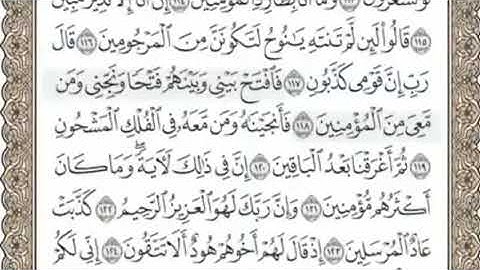 لَوْ تَشْعُرُونَ ۝١١٣ وَمَآ أَنَا۠ بِطَارِدِ ٱلْمُؤْمِنِينَ ۝١١٤ إِنْ أَنَا۠ إِلَّا نَذِيرٌ مُّبِينٌ
۝١١٥ قَالُوا۟ لَئِن لَّمْ تَنتَهِ يَٰنُوحُ لَتَكُونَنَّ مِنَ ٱلْمَرْجُومِينَ ۝١١٦ قَالَ
رَبِّ إِنَّ قَوْمِى كَذَّبُونِ ۝١١٧ فَٱفْتَحْ بَيْنِى وَبَيْنَهُمْ فَتْحًا وَنَجِّنِى وَمَن
مَّعِىَ مِنَ ٱلْمُؤْمِنِينَ ۝١١٨ فَأَنجَيْنَٰهُ وَمَن مَّعَهُۥ فِى ٱلْفُلْكِ ٱلْمَشْحُونِ
۝١١٩ ثُمَّ أَغْرَقْنَا بَعْدُ ٱلْبَاقِينَ ۝١٢٠ إِنَّ فِى ذَٰلِكَ لَءَايَةً ۖ وَمَا كَانَ
أَكْثَرُهُم مُّؤْمِنِينَ ۝١٢١ وَإِنَّ رَبَّكَ لَهُوَ ٱلْعَزِيزُ ٱلرَّحِيمُ ۝١٢٢ كَذَّبَتْ
عَادٌ ٱلْمُرْسَلِينَ ۝١٢٣ إِذْ قَالَ لَهُمْ أَخُوهُمْ هُودٌ أَلَا تَتَّقُونَ ۝١٢٤ إِنِّى لَكُمْ